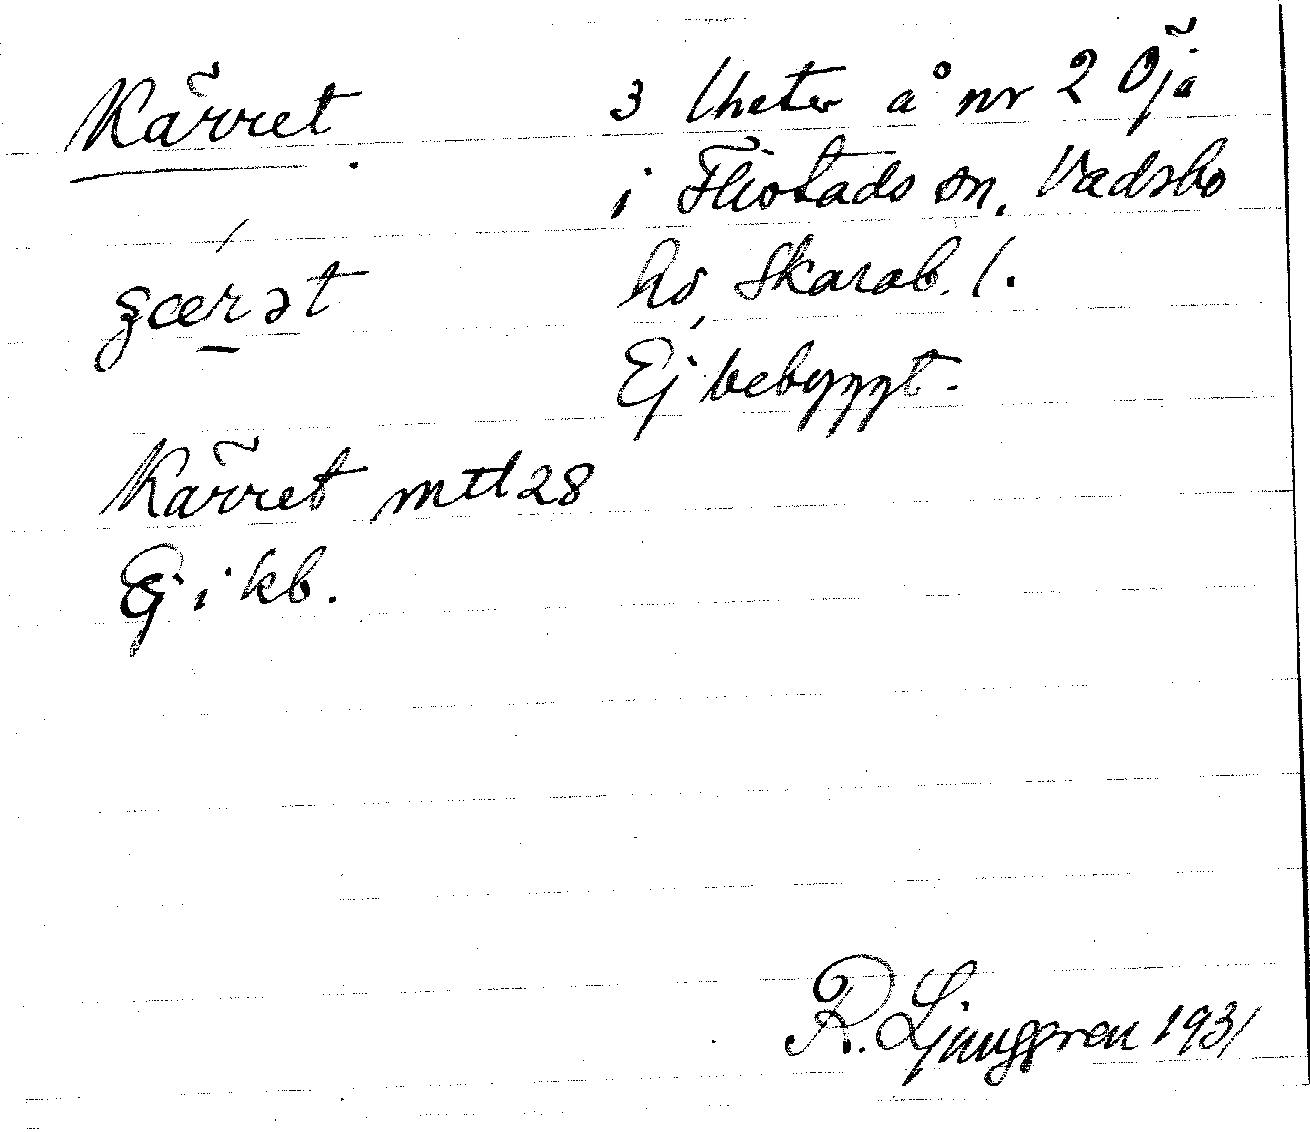 Kärret.
3 lheter å nr 2 Öja
i Flistads sn, Vadsbo
hd, Skarab. l.
Ej bebyggt.
Kärret mtl 28
Ej i kb.
R. Ljunggren 1931